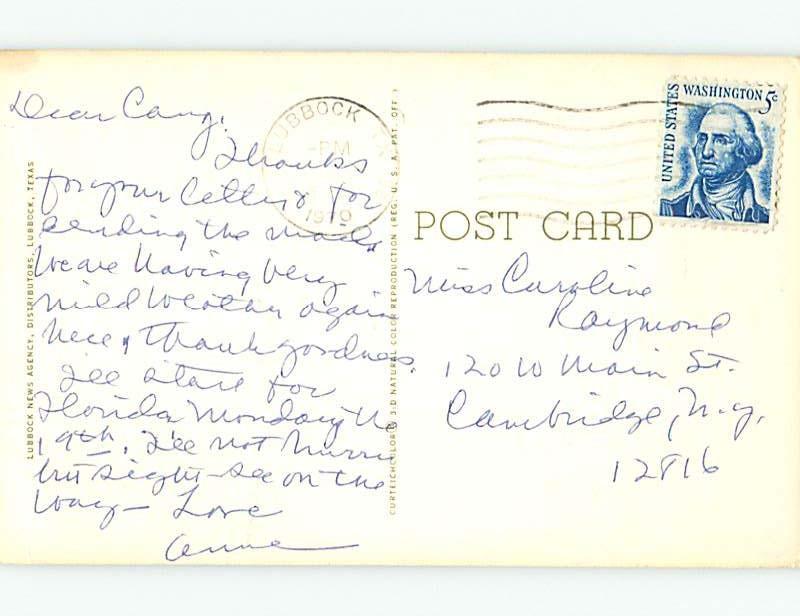 Dear Cary,
Thanks
for your letter & for
sending the mail.
We are having very
mild weather again
here, thank goodness.
I'll start for
Florida Monday the
19th. I'll not hurry
but sight-see on the
way— Love
Anne
LUBBOCK NEWS AGENCY, DISTRIBUTORS, LUBBOCK, TEXAS
LUBBOCK, TX
PM
1970
CURTEICHCOLOR® 3-D NATURAL COLOR REPRODUCTION (REG. U. S. A. PAT. OFF.)
UNITED STATES
WASHINGTON 5c
POST CARD
Miss Caroline
Raymond
120 W Main St.
Cambridge, N.Y.
12816